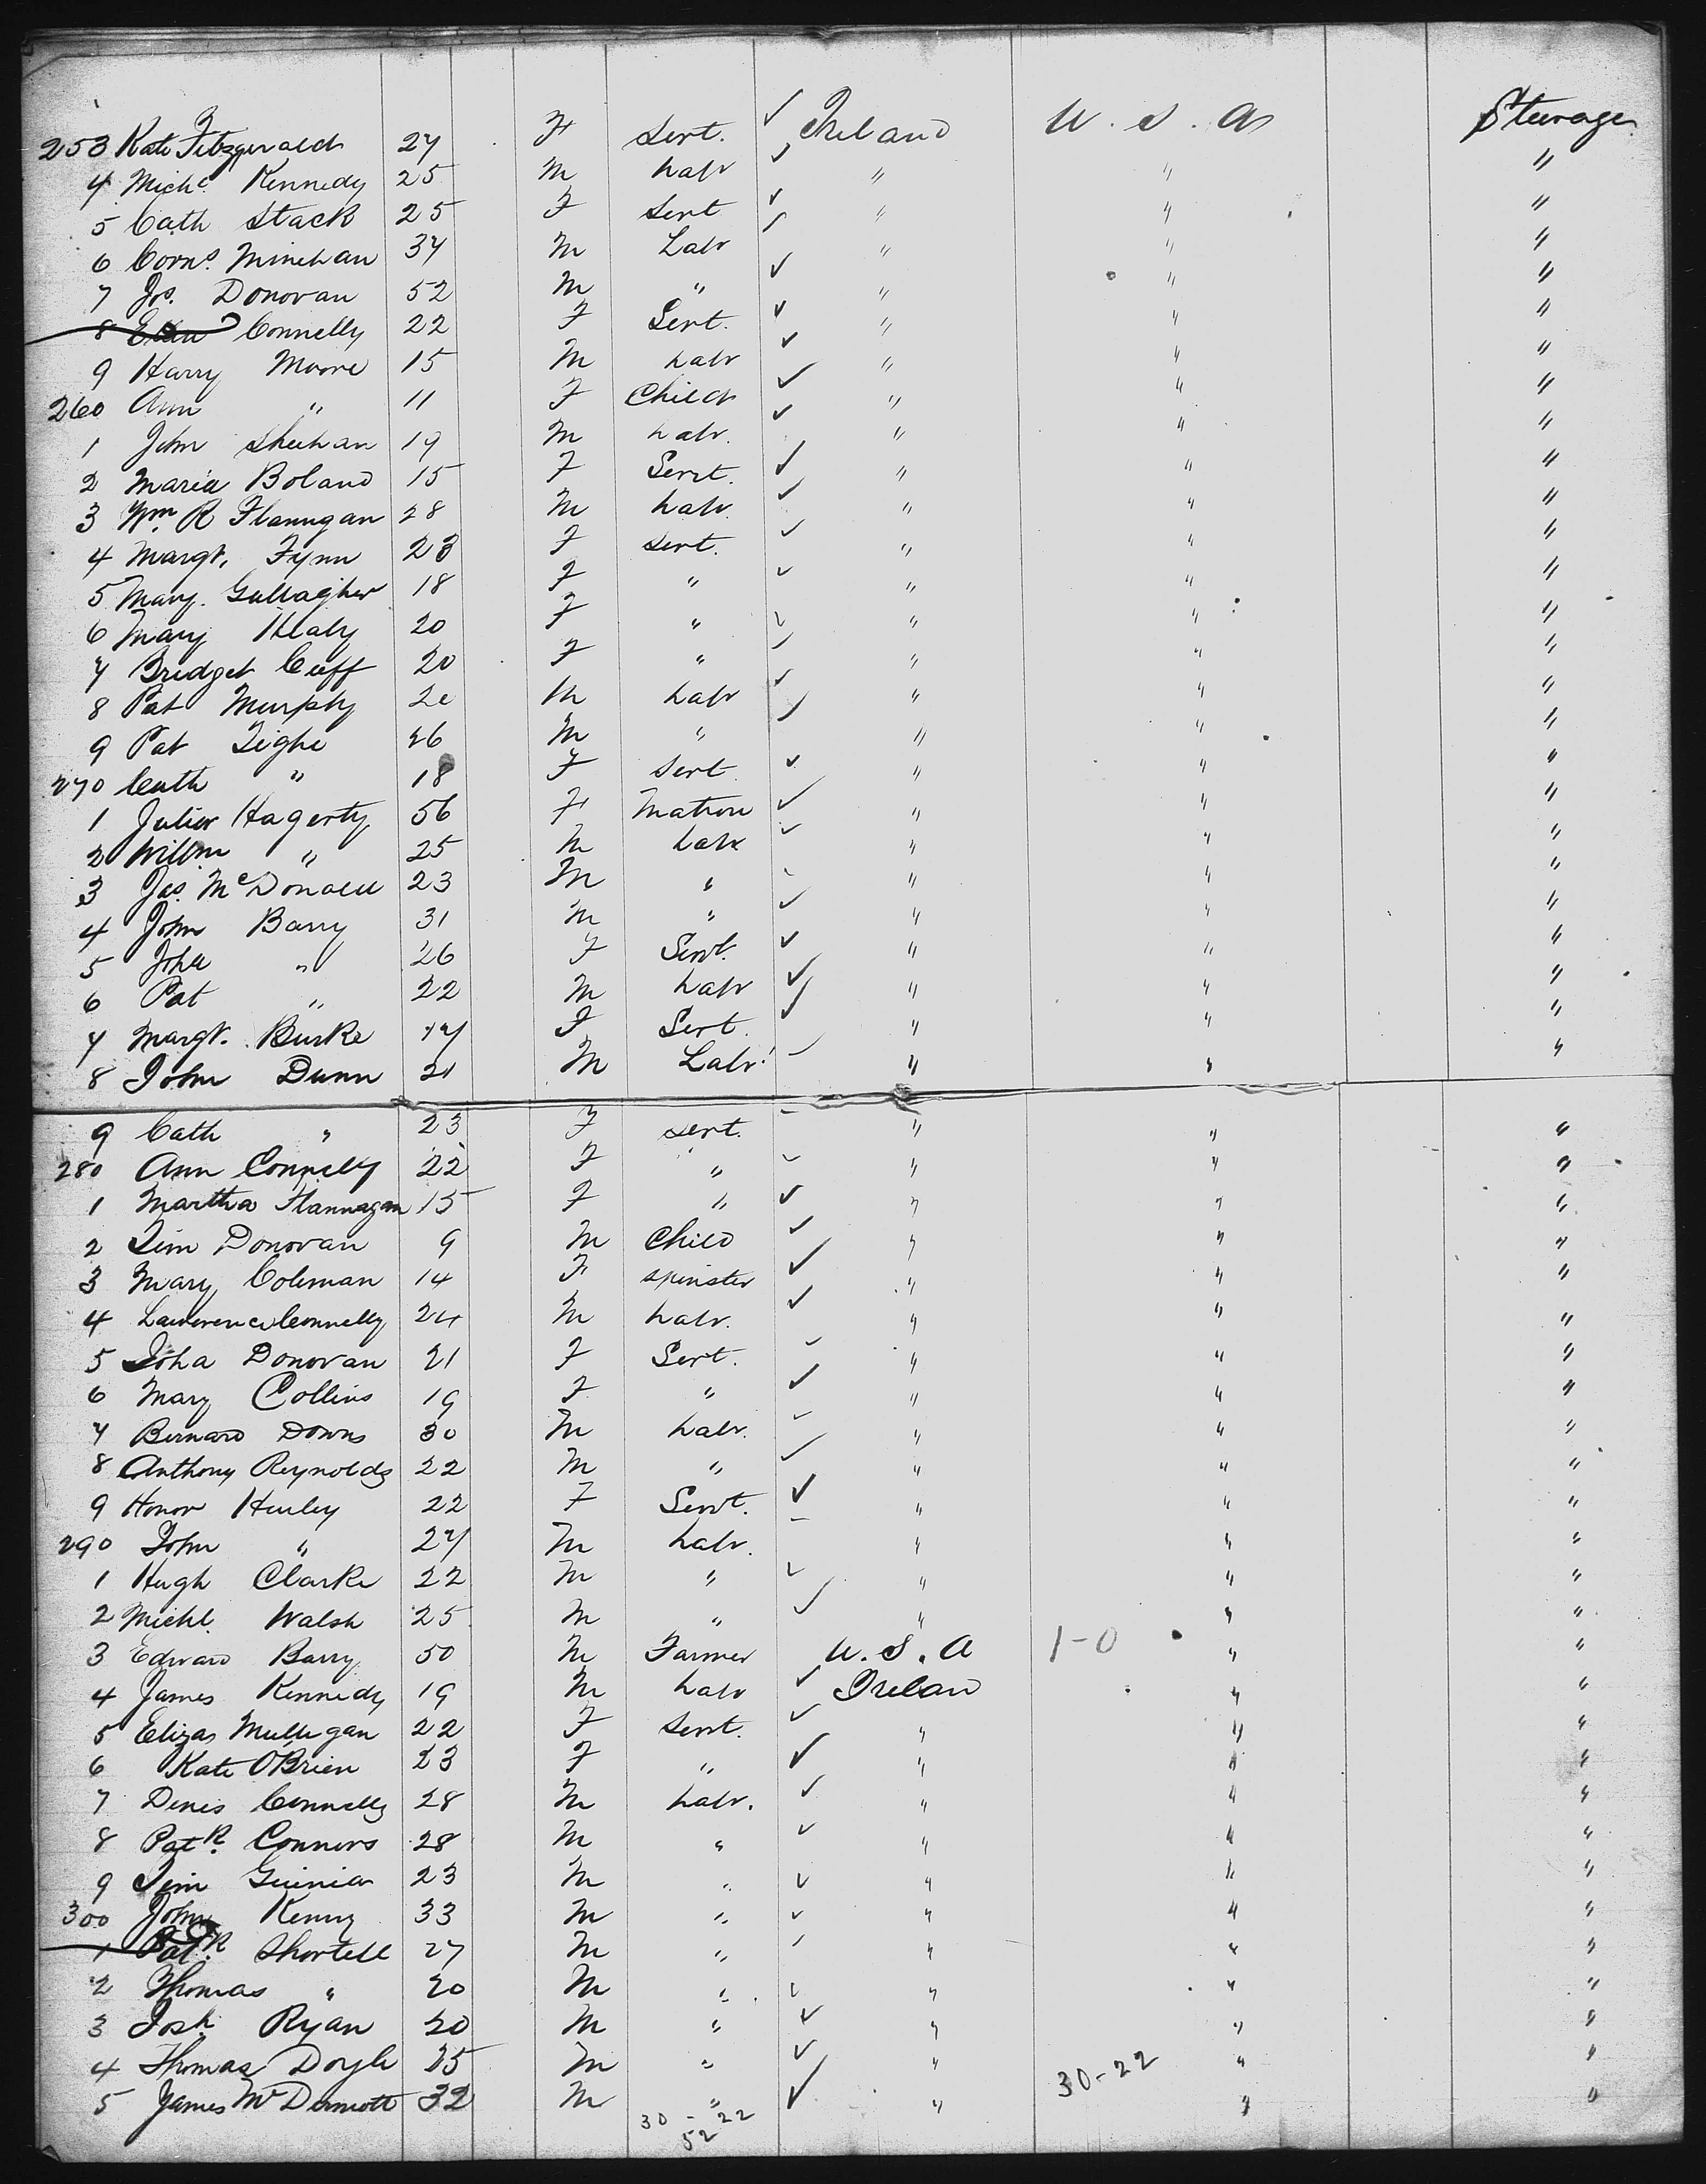 253 Kate Fitzgerald 27 F Servt. ✓ Ireland U.S.A Steerage
4 Michl. Kennedy 25 M Labr ✓ " " "
5 Cath Stack 25 F Servt ✓ " " "
6 Corns. Minehan 34 M Labr ✓ " " "
7 Jos. Donovan 52 M " ✓ " " "
8 Connelly 22 F Servt. ✓ " " "
9 Harry Moore 15 M Labr ✓ " " "
260 Ann " 11 F Child ✓ " " "
1 John Sheehan 19 M Labr. ✓ " " "
2 Maria Boland 15 F Servt. ✓ " " "
3 Wm. R Flannigan 28 M Labr ✓ " " "
4 Margt. Fynn 23 F Servt. ✓ " " "
5 Mary. Gallagher 18 F " ✓ " " "
6 Mary Healy 20 F " ✓ " " "
7 Bridget Cuff 20 F " ✓ " " "
8 Pat Murphy 20 M Labr ✓ " " "
9 Pat Tighe 26 M " ✓ " " "
270 Cath " 18 F Servt ✓ " " "
1 Julia Hagerty 56 F Matron ✓ " " "
2 Willm " 25 M Labr ✓ " " "
3 Jas. McDonald 23 M " ✓ " " "
4 John Barry 31 M " ✓ " " "
5 Joha " 26 F Servt. ✓ " " "
6 Pat " 22 M Labr ✓ " " "
7 Margt. Burke 17 F Servt. ✓ " " "
8 John Dunn 21 M Labr ✓ " " "
9 Cath " 23 F Servt. ✓ " " "
280 Ann Connelly 22 F " ✓ " " "
1 Martha Flannagan 15 F " ✓ " " "
2 Tim Donovan 9 M Child ✓ " " "
3 Mary Coleman 14 F Spinster ✓ " " "
4 Lawerence Connelly 24 M Labr. ✓ " " "
5 Joha Donovan 21 F Servt. ✓ " " "
6 Mary Collins 19 F " ✓ " " "
7 Bernard Downs 30 M Labr. ✓ " " "
8 Anthony Reynolds 22 M " ✓ " " "
9 Honor Hurley 22 F Servt. ✓ " " "
290 John " 27 M Labr. ✓ " " "
1 Hugh Clarke 22 M " ✓ " " "
2 Michl. Walsh 25 M " ✓ " " "
3 Edward Barry 50 M Farmer U.S.A 1-0 " "
4 James Kennedy 19 M Labr ✓ Irelan " "
5 Elizas Mulligan 22 F Servt. ✓ " " "
6 Kate O'Brien 23 F " ✓ " " "
7 Denis Connelly 28 M Labr. ✓ " " "
8 Patk. Connors 28 M " ✓ " " "
9 Tim Guinia 23 M " ✓ " " "
300 John Kenny 33 M " ✓ " " "
1 Patk. Shortell 27 M " ✓ " " "
2 Thomas " 20 M " ✓ " " "
3 Josh. Ryan 20 M " ✓ " " "
4 Thomas Doyle 25 M " ✓ " 30-22 " "
5 James McDermott 32 M " ✓ " " "
30 - 22
52